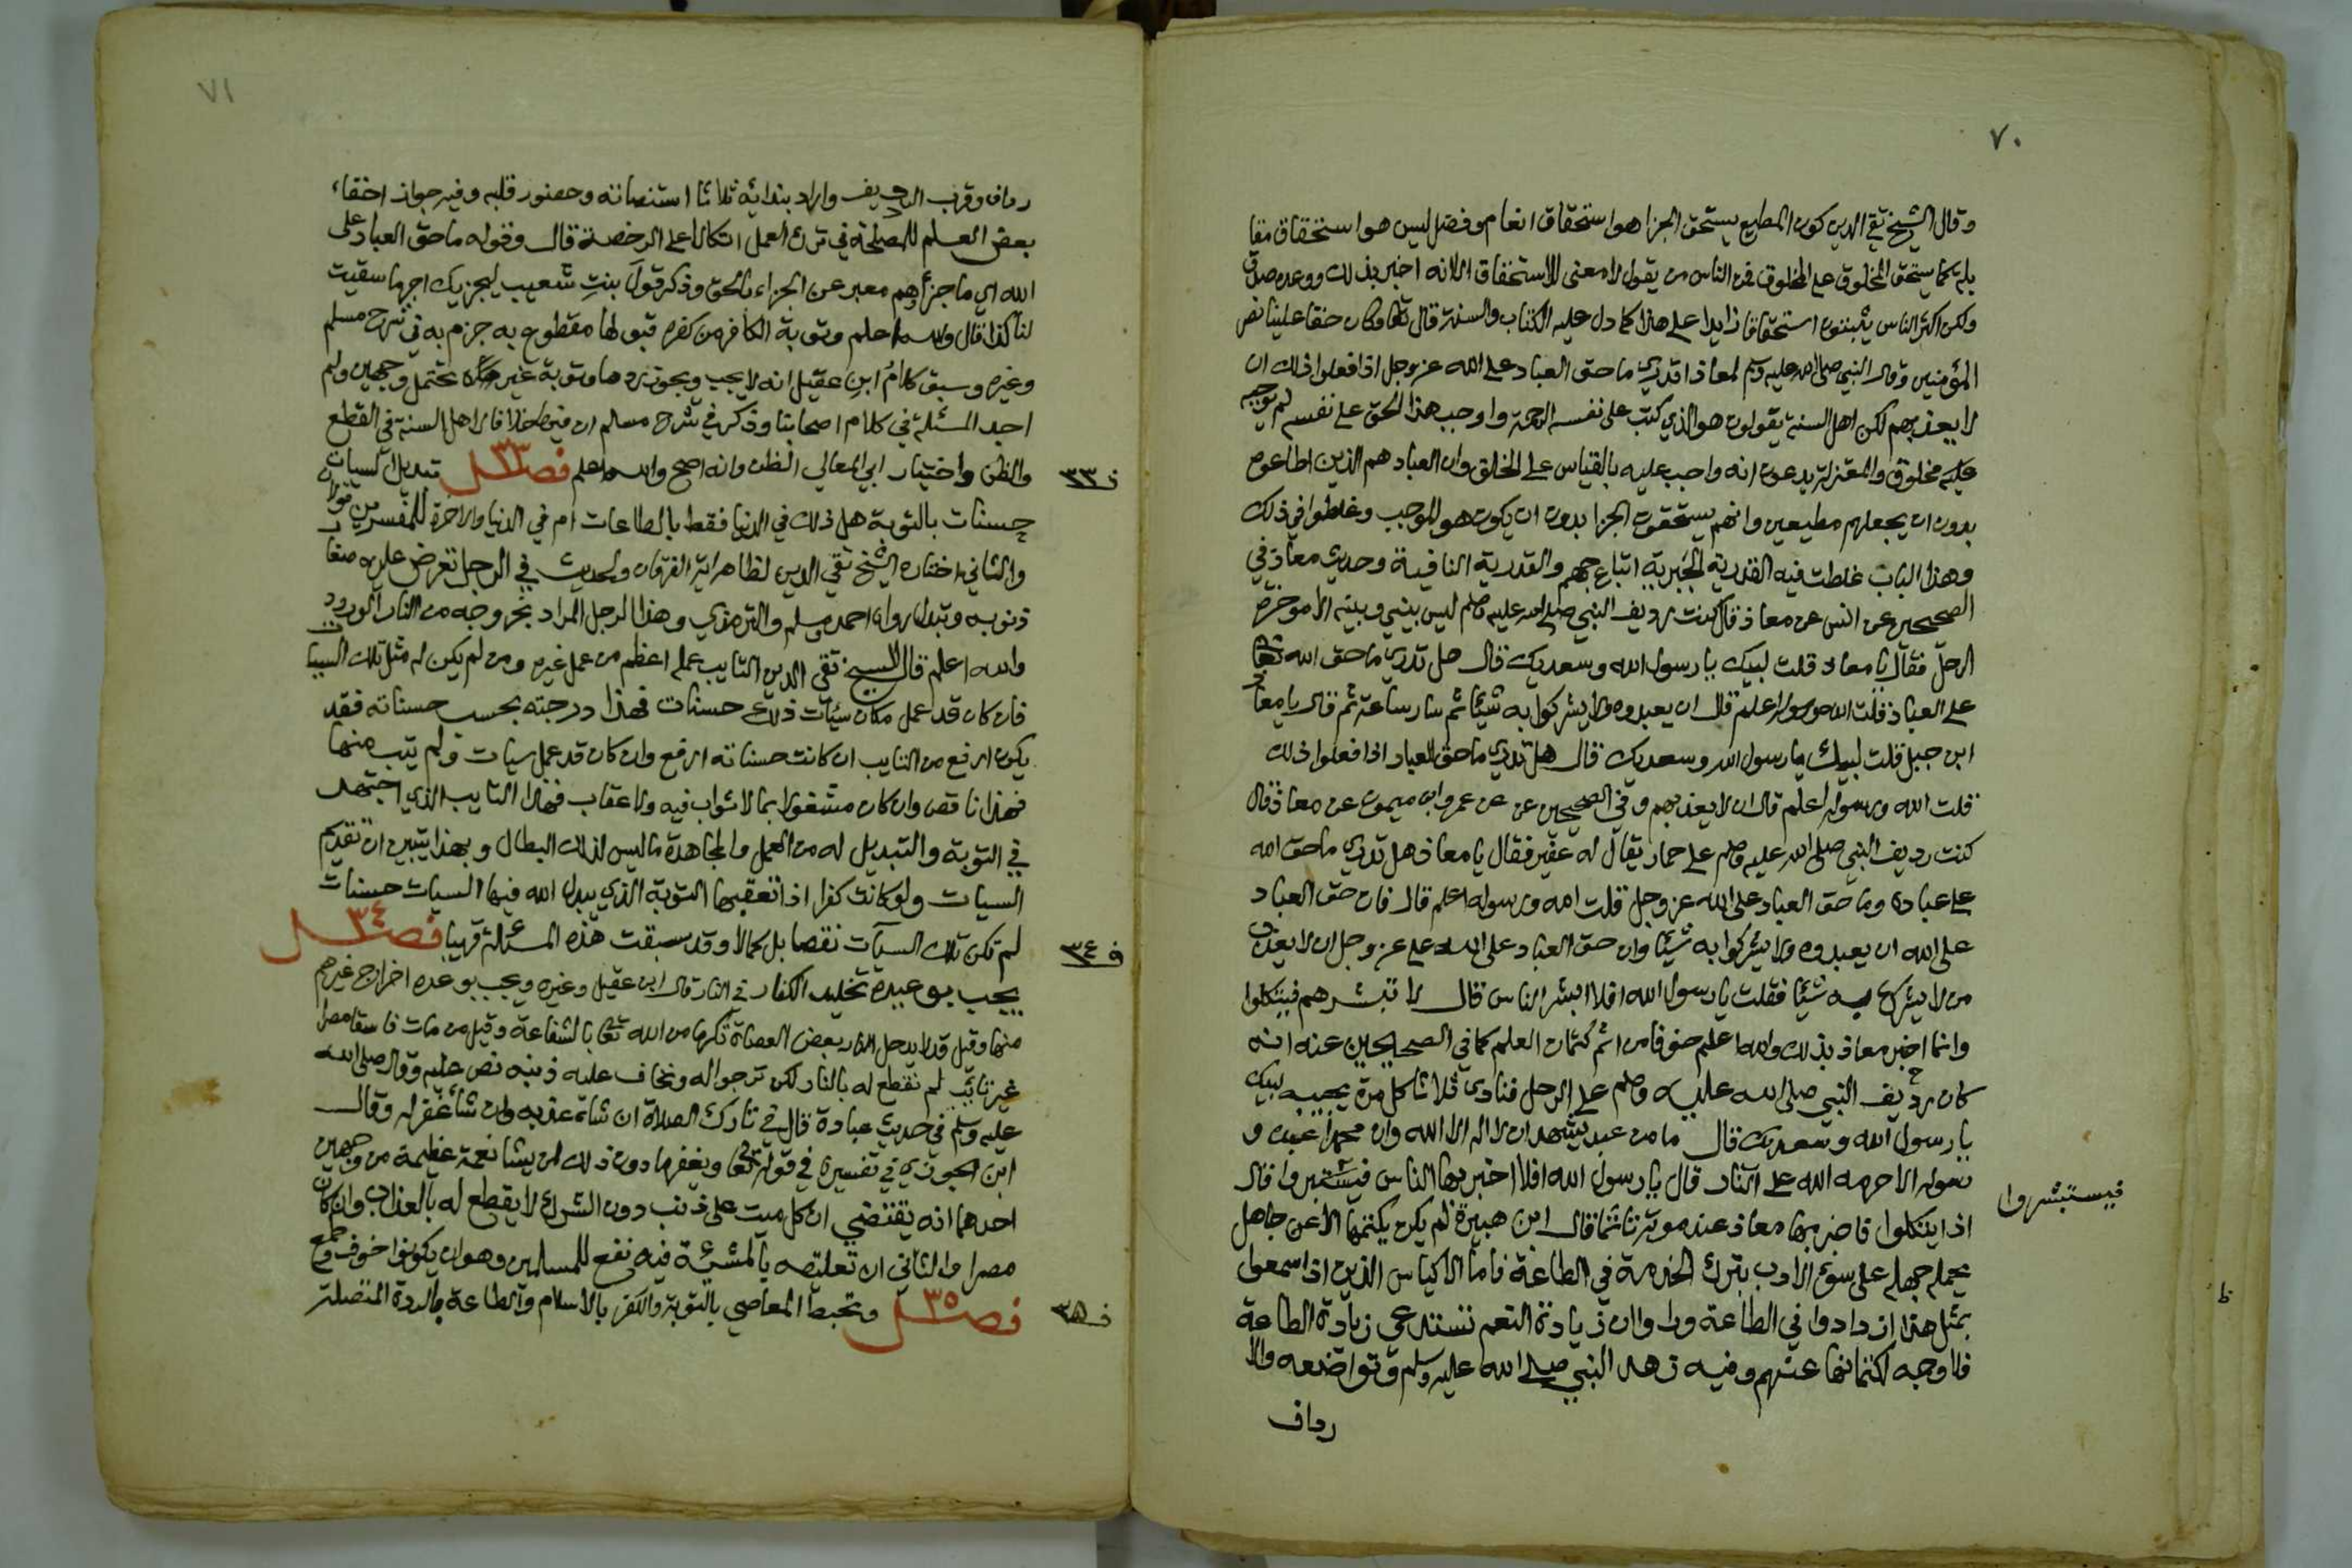 ٧٠
وقال الشيخ تقي الدين كون المطيع يستحق الجزا هو استحقاق انعام وفضل ليس هو استحقاق مقا
بلة كما يستحق المخلوق على المخلوق فمن الناس من يقول لا معنى للاستحقاق الا انه اخبر بذلك ووعده صدق
ولكن اكثر الناس يثبتون استحقاقا زايدا على هذا كما دل عليه الكتاب والسنة قال تعا وكان حقا علينا نصر
المؤمنين وقال النبي صلى الله عليه وسلم لمعاذ اتدري ما حق العباد على الله عز وجل اذا فعلوا ذلك ان
لا يعذبهم لكن اهل السنة يقولون هو الذي كتب على نفسه الرحمة واوجب هذا الحق على نفسه لم يوجبه
عليه مخلوق والمعتزلة يدعون انه واجب عليه بالقياس على الخلق وان العباد هم الذين اطاعوه
بدون ان يجعلهم مطيعين وانهم يستحقون الجزا بدون ان يكون هو الموجب وغلطوا في ذلك
وهذا الباب غلطت فيه القدرية الجبرية اتباع جهم والقدرية النافية وحديث معاذ في
الصحيحين عن انس عن معاذ قال كنت رديف النبي صلى الله عليه وسلم ليس بيني وبينه الا موخرة
الرحل فقال يا معاذ قلت لبيك يا رسول الله وسعديك قال هل تدري ما حق الله تعا
على العباد قلت الله ورسوله اعلم قال ان يعبدوه ولا يشركوا به شيئا ثم سار ساعة ثم قال يا معاذ
ابن جبل قلت لبيك يا رسول الله وسعديك قال هل تدري ما حق العباد اذا فعلوا ذلك
قلت الله ورسوله اعلم قال ان لا يعذبهم وفي الصحيحين عن عن عمرو ابن ميمون عن معاذ قال
كنت رديف النبي صلى الله عليه وسلم على حمار يقال له عفير فقال يا معاذ هل تدري ما حق الله
على عباده وما حق العباد على الله عز وجل قلت الله ورسوله اعلم قال فان حق العباد
على الله ان يعبدوه ولا يشركوا به شيئا وان حق العباد على الله على عز وجل ان لا يعذب
من لا يشرك به شيئا فقلت يا رسول الله افلا ابشر الناس قال لا تبشرهم فيتكلوا
وانما اخبر معاذ بذلك والله اعلم خوفا من اثم كتمان العلم كما في الصحيحين عنه انه
كان رديف النبي صلى الله عليه وسلم على الرحل فنادى ثلاثا كل مرة يجيبه لبيك
يا رسول الله وسعديك قال ما من عبد يشهد ان لا اله الا الله وان محمدا عبده و
رسوله الا حرمه الله على النار قال يا رسول الله افلا اخبر بها الناس فيستبشروا قال
فيستبشروا
اذا يتكلوا فاخبر بها معاذ عند موته تاثما قال ابن هبيرة لم يكن يكتمها الا عن جاهل
يحمله جهله على سوء الادب بترك الخدمة في الطاعة فاما الاكياس الذين اذا سمعوا
بمثل هذا ازدادوا في الطاعة وراوا ان زيادة النعم تستدعي زيادة الطاعة
فلا وجه لكتمانها عنهم وفيه زهد النبي صلى الله عليه وسلم وتواضعه والا
رداف
ط
٧١
رداف وقرب الرديف واراد بندائه ثلاثا استنصاته وحضور قلبه وفيه جواز اخفاء
بعض العلم للمصلحة في ترك العمل اتكالا على الرخصة قال وقوله ما حق العباد على
الله اي ما جزاؤهم معبر عن الجزاء بالحق وذكر قول بنت شعيب ليجزيك اجر ما سقيت
لنا كذا قال والله اعلم وتوبة الكافر من كفره قبولها مقطوع به جزم به في شرح مسلم
وغيره وسبق كلام ابن عقيل انه لا يجب ويجوز ردها وتوبة غيره تحتمل وجهين ولم
اجد المسئلة في كلام اصحابنا وذكر في شرح مسلم ان فيها خلافا لاهل السنة في القطع
والظن واختيار ابي المعالي الظن وانه اصح والله اعلم فصل ٣٣ تبديل السيات
ف ٣٣
حسنات بالتوبة هل ذلك في الدنيا فقط بالطاعات ام في الدنيا والاخرة للمفسرين قولا
والثاني اختاره الشيخ تقي الدين لظاهر اية الفرقان ولحديث في الرجل تعرض عليه صغا
ذنوبه وتبدل رواه احمد ومسلم والترمذي وهذا الرجل المراد بخروجه من النار الورود
والله اعلم قال الشيخ تقي الدين التايب عمله اعظم من عمل غيره ومن لم يكن له مثل تلك السيات
فان كان قد عمل مكان سيئات ذلك حسنات فهذا درجته بحسب حسناته فقد
يكون ارفع من التايب ان كانت حسناته ارفع وان كان قد عمل سيات ولم يتب منها
فهذا ناقص وان كان مشغولا بما لا ثواب فيه ولا عقاب فهذا التايب الذي اجتهد
في التوبة والتبديل له من العمل والمجاهدة ما ليس لذلك البطال وبهذا يتبين ان تقديم
السيات ولو كانت كفرا اذا تعقبها التوبة الذي يبدل الله فيها السيات حسنات
لم تكن تلك السيآت نقصا بل كمالا وقد سبقت هذه المسئلة قريبا فصل ٣٤
ف ٣٤
يجب بوعيده تخليد الكفار في النار قال ابن عقيل وغيره ويجب بوعده اخراج غيرهم
منها وقيل قد لا يدخل النار بعض العصاة تكرما من الله تعا بالشفاعة وقيل من مات فاسقا مصرا
غير تائب لم نقطع له بالنار لكن نرجوا له ونخاف عليه ذنبه نص عليه وقال صلى الله
عليه وسلم في حديث عبادة قال في تارك الصلاة ان شاء عذبه وان شاء غفر له وقال
ابن الجوزي في تفسيره في قوله تعا ويغفر ما دون ذلك لمن يشا نعمة عظيمة من وجهين
احدهما انه يقتضي ان كل ميت على ذنب دون الشرك لا يقطع له بالعذاب وان كان
مصرا والثاني ان تعليقه بالمشئة فيه نفع للمسلمين وهو ان يكونوا خوف وطمع
فصل ٣٥ وتحبط المعاصي بالتوبة والكفر بالاسلام والطاعة بالردة المتصلة
ف ٣٥